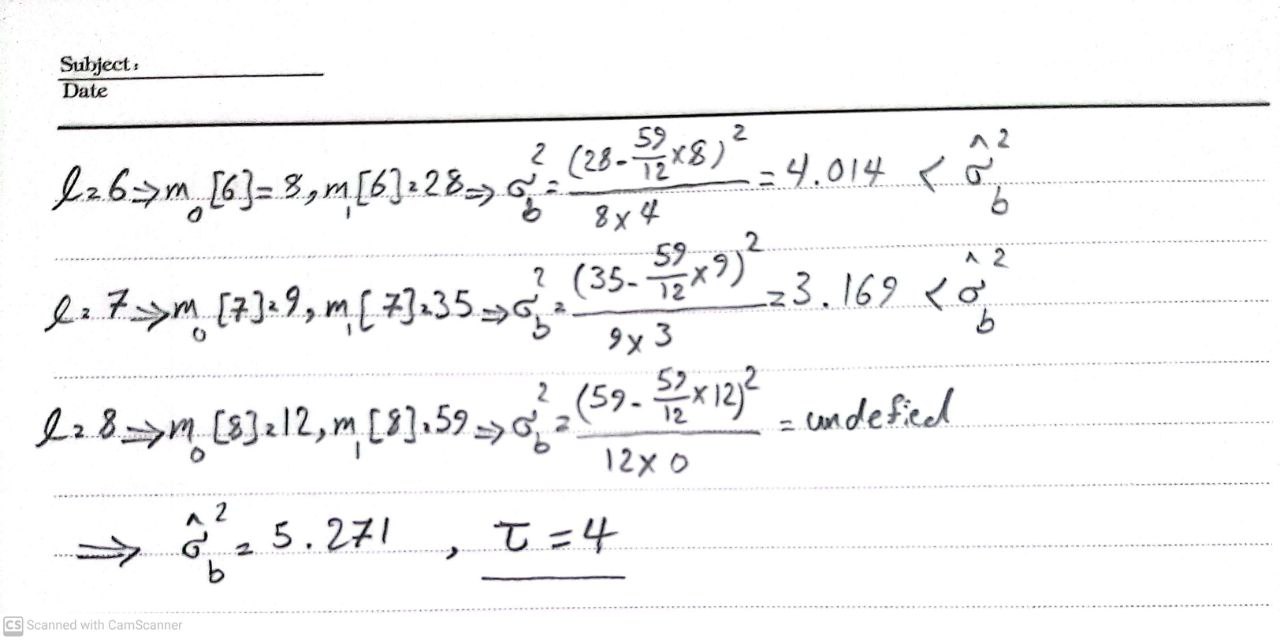 Subject:
Date
l=6⇒m₀[6]=8, m₁[6]=28⇒σ_b²=(28-59/12×8)²/(8×4)=4.014 < σ̂_b²
l=7⇒m₀[7]=9, m₁[7]=35⇒σ_b²=(35-59/12×9)²/(9×3)=3.169 < σ̂_b²
l=8⇒m₀[8]=12, m₁[8]=59⇒σ_b²=(59-59/12×12)²/(12×0)=undefied
⇒ σ̂_b²=5.271 , τ=4
CS Scanned with CamScanner